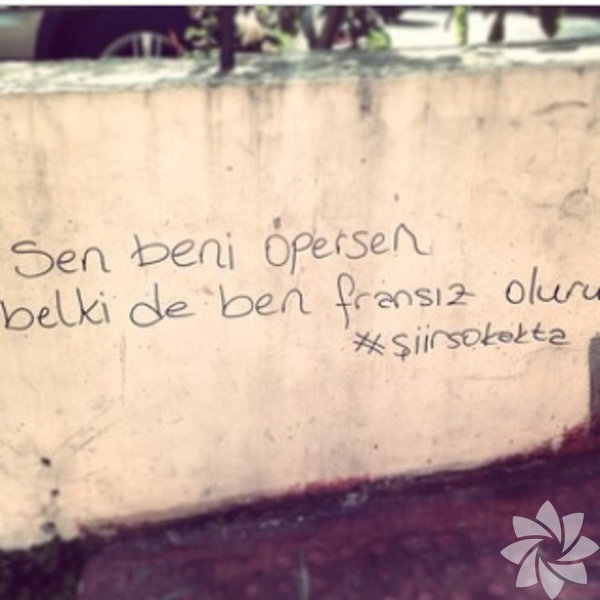 Sen beni öpersen
belki de ben fransız oluru
#şiirsokakta